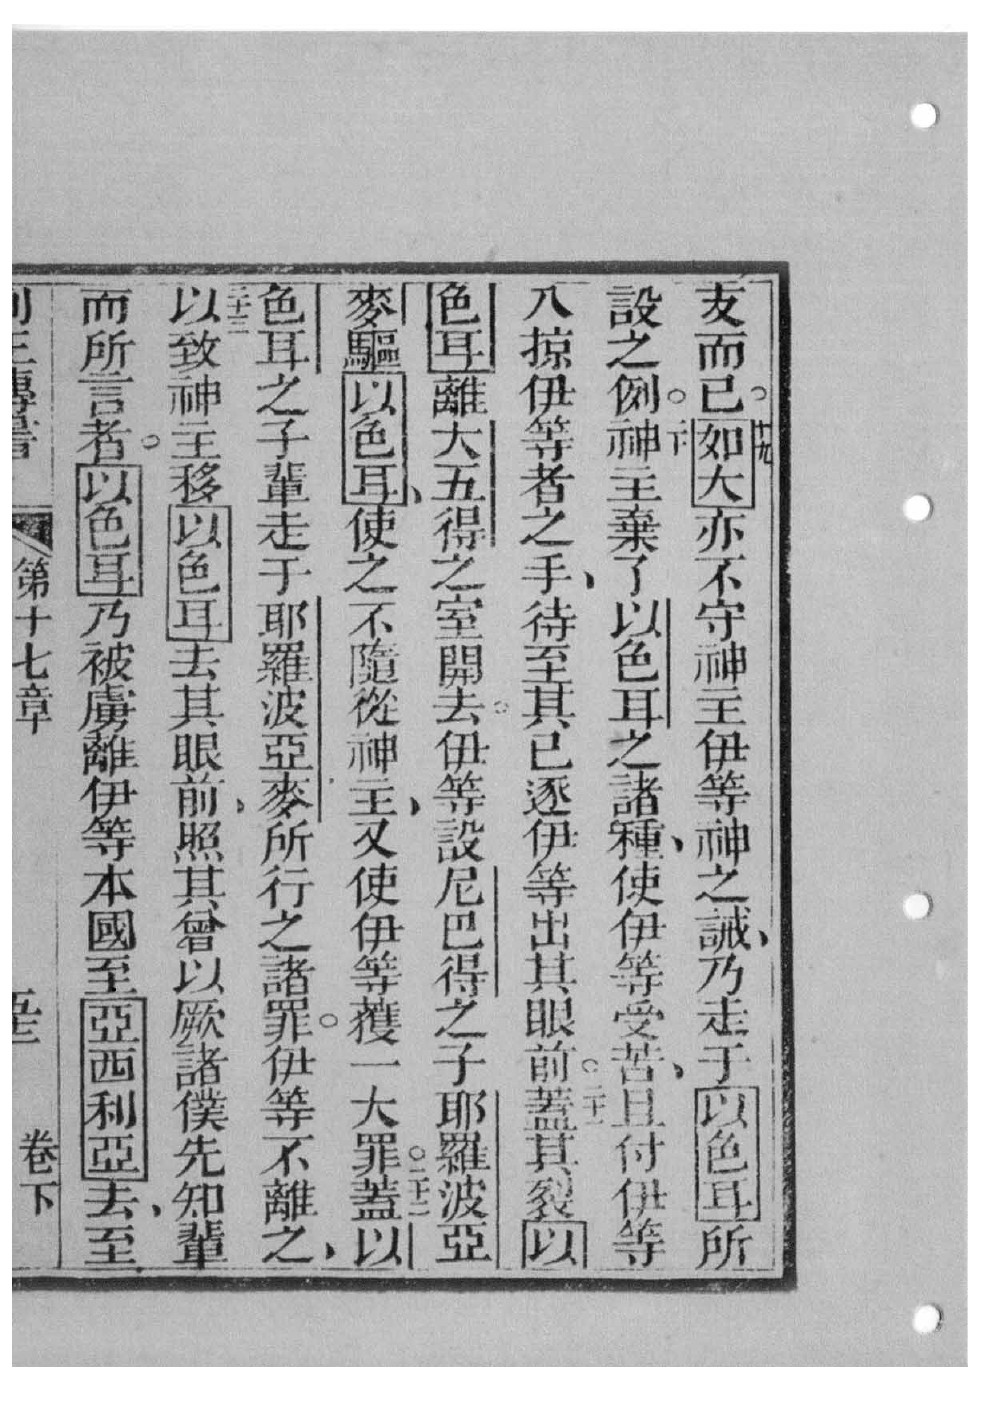 支而已。十九如大亦不守神主伊等神之誡、乃走于以色耳所
設之例。二十神主棄了以色耳之諸種、使伊等受苦、且付伊等
八掠伊等者之手、待至其已逐伊等出其眼前。二十一蓋其裂以
色耳離大五得之室開去。伊等設尼巴得之子耶羅波亞
麥驅以色耳、使之不隨從神主、又使伊等獲一大罪。二十二蓋以
色耳之子輩走于耶羅波亞麥所行之諸罪。伊等不離之、
二十三以致神主移以色耳去其眼前、照其曾以厥諸僕先知輩
而所言者。以色耳乃被虜離伊等本國至亞西利亞去、至
列王傳書 第十七章 卷下